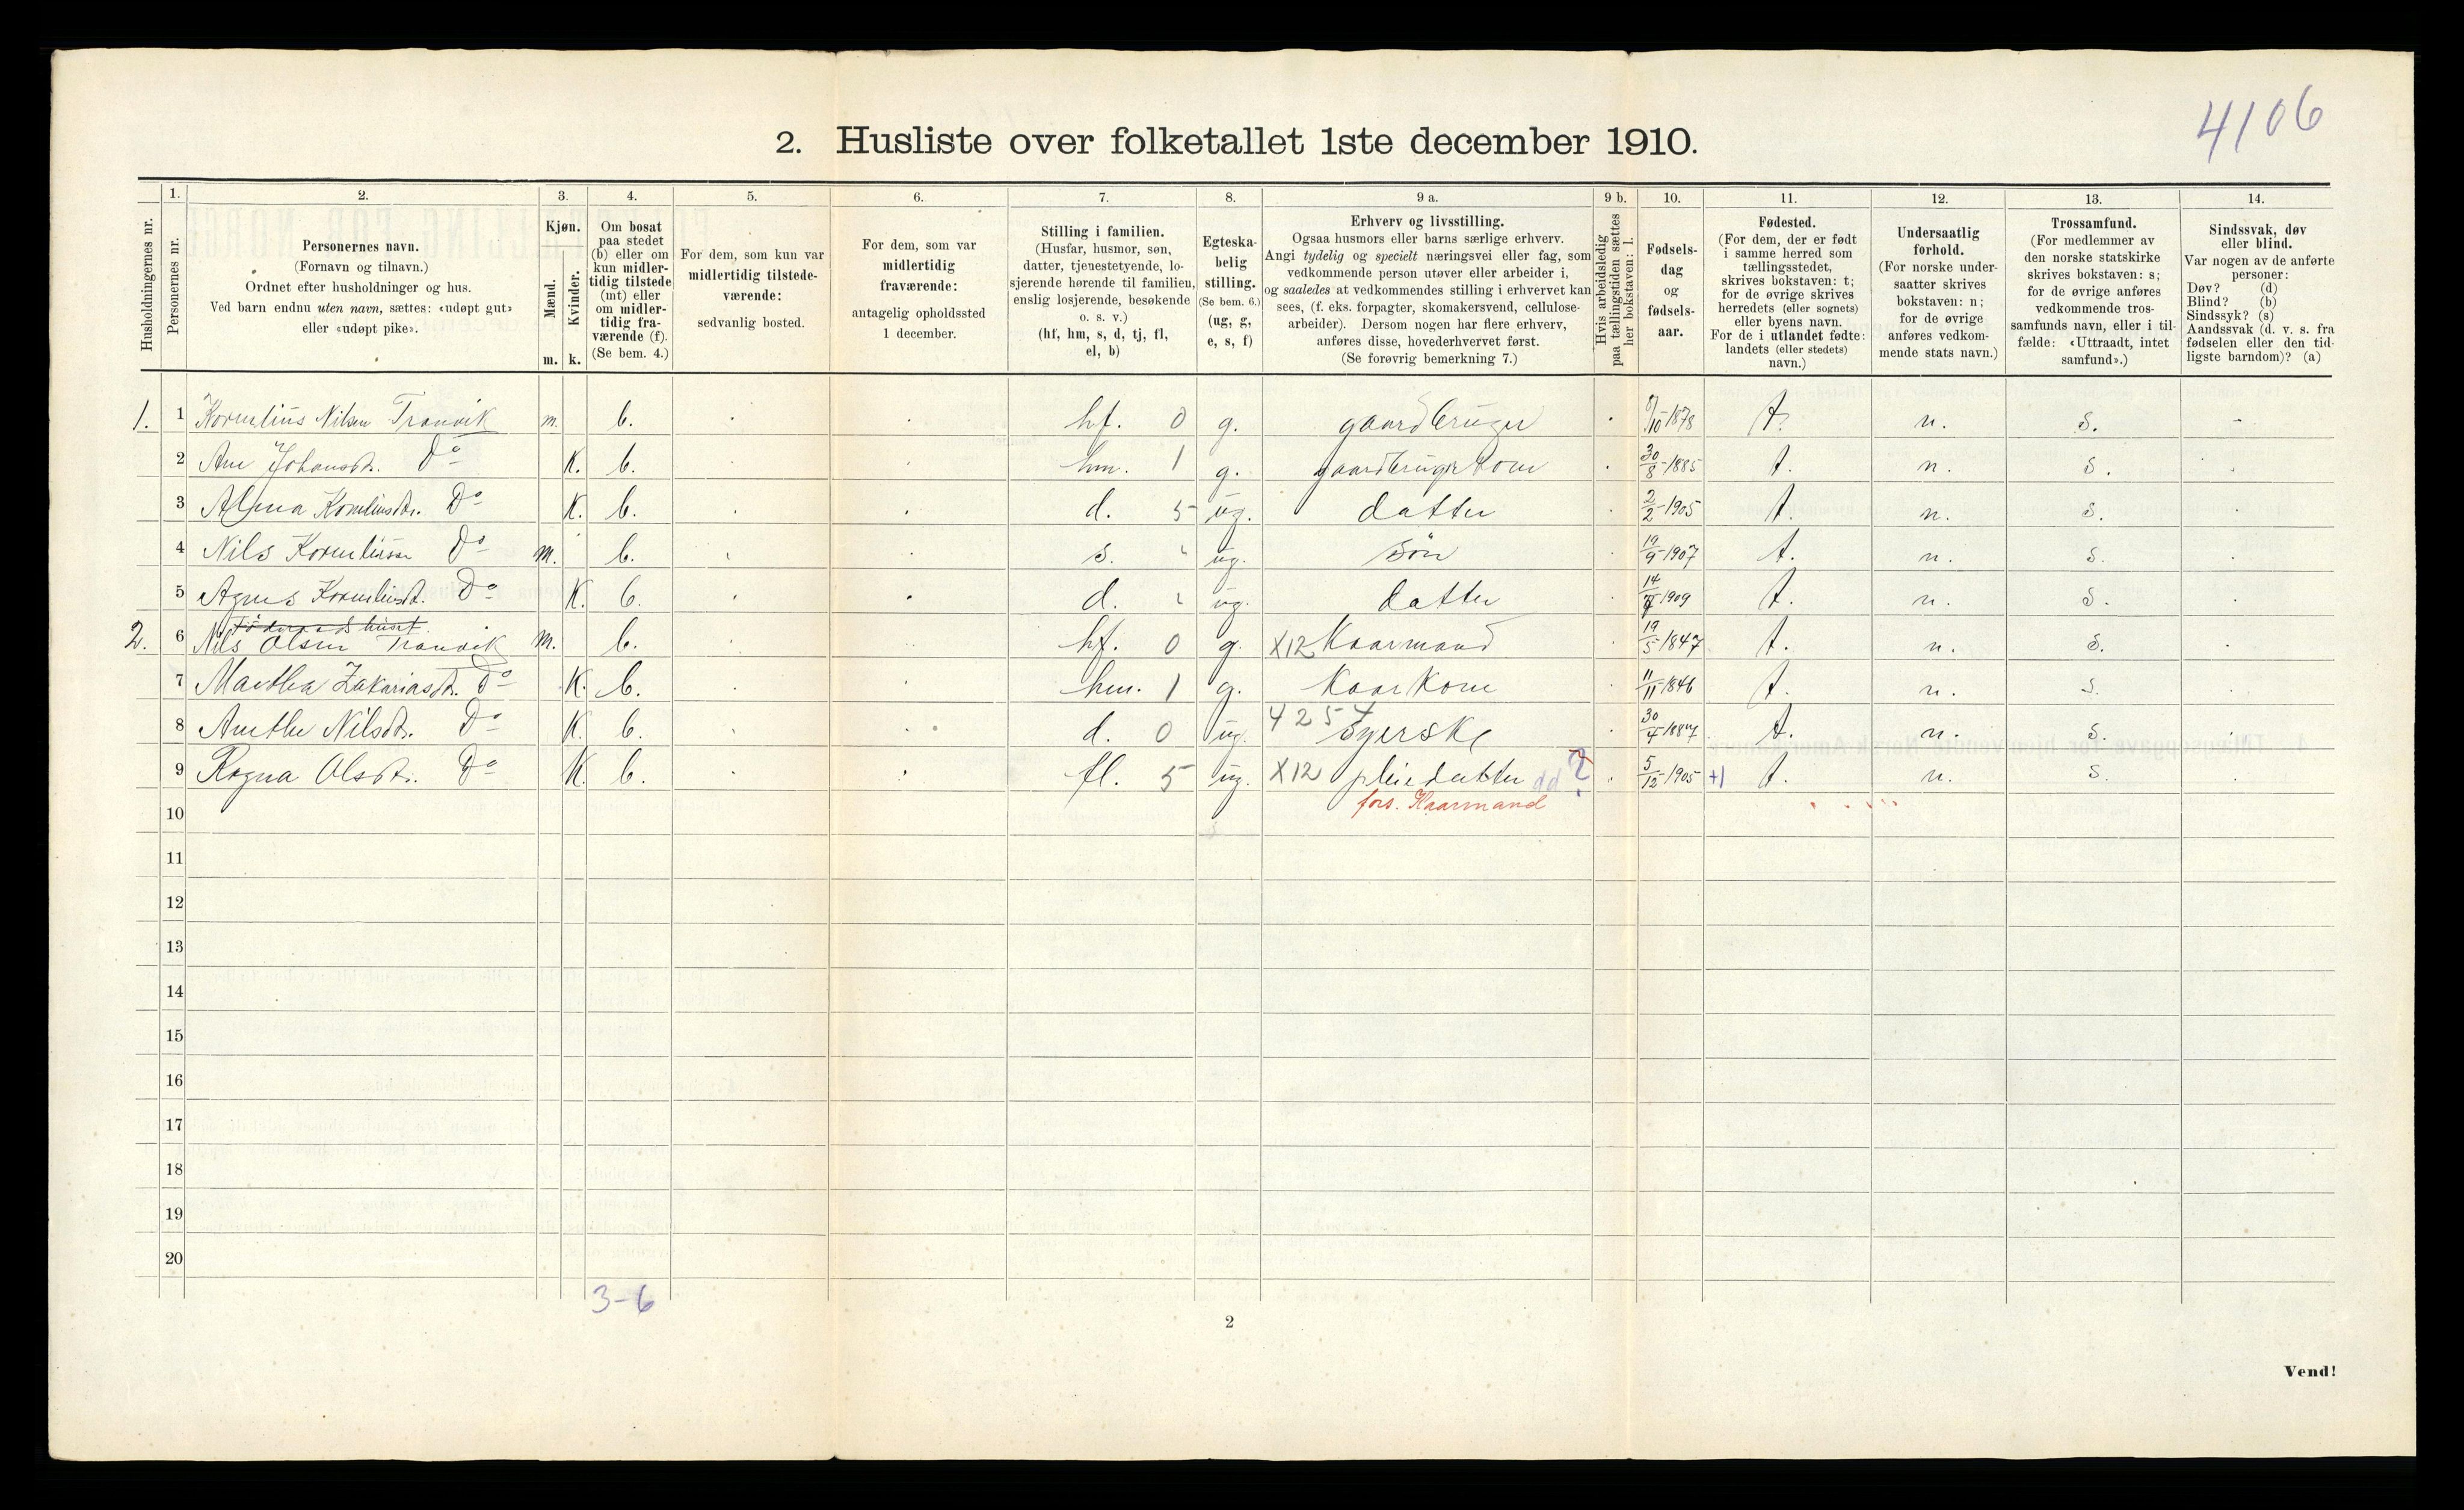 4106
2. Husliste over folketallet 1ste december 1910.
Husholdningernes nr.
1.
Personernes nr.
2.
Personernes navn.
(Fornavn og tilnavn.)
Ordnet efter husholdninger og hus.
Ved barn endnu uten navn, sættes: «udøpt gut»
eller «udøpt pike».
3.
Kjøn.
Mænd.
Kvinder.
m. k.
4.
Om bosat
paa stedet
(b) eller om
kun midler-
tidig tilstede
(mt) eller
om midler-
tidig fra-
værende (f).
(Se bem. 4.)
5.
For dem, som kun var
midlertidig tilstede-
værende:
sedvanlig bosted.
6.
For dem, som var
midlertidig
fraværende:
antagelig opholdssted
1 december.
7.
Stilling i familien.
(Husfar, husmor, søn,
datter, tjenestetyende, lo-
sjerende hørende til familien,
enslig losjerende, besøkende
o. s. v.)
(hf, hm, s, d, tj, fl,
el, b)
8.
Egteska-
belig
stilling.
(Se bem. 6.)
(ug, g,
e, s, f)
9 a.
Erhverv og livsstilling.
Ogsaa husmors eller barns særlige erhverv.
Angi tydelig og specielt næringsvei eller fag, som
vedkommende person utøver eller arbeider i,
og saaledes at vedkommendes stilling i erhvervet kan
sees, (f. eks. forpagter, skomakersvend, cellulose-
arbeider). Dersom nogen har flere erhverv,
anføres disse, hovederhvervet først.
(Se forøvrig bemerkning 7.)
9 b.
Hvis arbeidsledig
paa tællingstiden sættes
her bokstaven: l.
10.
Fødsels-
dag
og
fødsels-
aar.
11.
Fødested.
(For dem, der er født
i samme herred som
tællingsstedet,
skrives bokstaven: t;
for de øvrige skrives
herredets (eller sognets)
eller byens navn.
For de i utlandet fødte:
landets (eller stedets)
navn.)
12.
Undersaatlig
forhold.
(For norske under-
saatter skrives
bokstaven: n;
for de øvrige
anføres vedkom-
mende stats navn.)
13.
Trossamfund.
(For medlemmer av
den norske statskirke
skrives bokstaven: s;
for de øvrige anføres
vedkommende tros-
samfunds navn, eller i til-
fælde: «Uttraadt, intet
samfund».)
14.
Sindssvak, døv
eller blind.
Var nogen av de anførte
personer:
Døv? (d)
Blind? (b)
Sindssyk? (s)
Aandssvak (d. v. s. fra
fødselen eller den tid-
ligste barndom)? (a)
1. 1 Kornelius Nilsen Tranvik m. b. hf. 0 g. gaardbruger /10-1878 t. n. s. -
2 Ane Johansdtr. Do K. b. hm. 1 g. gaardbrugerkone 30/8-1885 t. n. s.
3 Alma Korneliusdtr. Do K. b. d. 5 ug. datter 2/2-1905 t. n. s.
4 Nils Korneliusen Do m. b. s. " ug. søn 19/9-1907 t. n. s.
5 Agnes Korneliusdt. Do K. b. d. " ug. datter 14/-1909 t. n. s.
Föderaads huset
2. 6 Nils Olsen Tranvik m. b. hf. 0 g. X12 Kaarmand 19/5-1847 t. n. s.
7 Martha Zakariasdtr. Do K. b. hm. 1 g. Kaarkone 11/11-1846 t. n. s.
8 Anethe Nilsdtr. Do K. b. d. 0 ug. 4254 Syerske 30/4-1887 t. n. s.
9 Ragna Olsdtr. Do K. b. fl. 5 ug. X12 pleiedatter dd ? 5/12-1905 +1 t. n. s.
fors. Kaarmand
10
11
12
13
14
15
16
17
18
19
20
3-6
2
Vend!